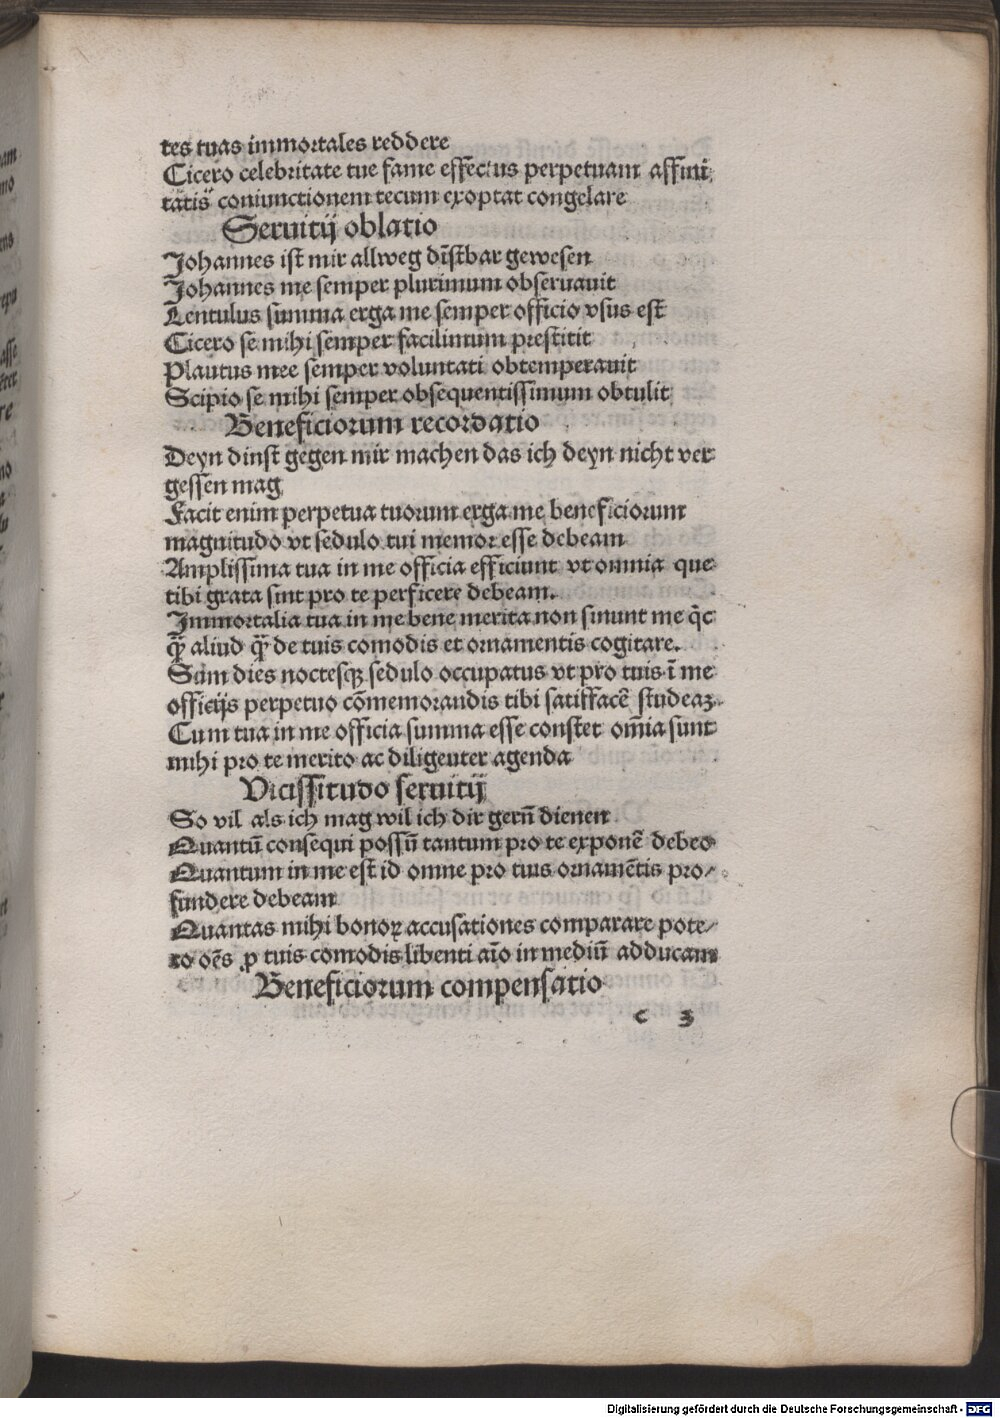 tes tuas immortales reddere
Cicero celebritate tue fame effectus perpetuam affini
tatis coniunctionem tecum exoptat congelare
Seruitij oblatio
Johannes ist mir allweg dinstbar gewesen
Johannes me semper plurimum obseruauit
Lentulus summa erga me semper officio vsus est
Cicero se mihi semper facilimum prestitit
Plautus mee semper voluntati obtemperauit
Scipio se mihi semper obsequentissimum obtulit
Beneficiorum recordatio
Deyn dinst gegen mir machen das ich deyn nicht ver
gessen mag
Facit enim perpetua tuorum erga me beneficiorum
magnitudo vt sedulo tui memor esse debeam
Amplissima tua in me officia efficiunt vt omnia que
tibi grata sint pro te perficere debeam.
Immortalia tua in me bene merita non sinunt me q̄c
q̄ aliud q̄ de tuis comodis et ornamentis cogitare.
Sum dies noctesqꝫ sedulo occupatus vt pro tuis ī me
officijs perpetuo cōmemorandis tibi satiffacē studeaꝫ
Cum tua in me officia summa esse constet om̄ia sunt
mihi pro te merito ac diligenter agenda
Vicissitudo seruitij
So vil als ich mag wil ich dir gern̄ dienen
Quantū consequi possū tantum pro te exponē debeo
Quantum in me est id omne pro tuis ornamētis pro⸗
fundere debeam
Quantas mihi bonoꝝ accusationes comparare pote⸗
ro oēs ꝓ tuis comodis libenti aīo in mediū adducam
Beneficiorum compensatio
c 3
Digitalisierung gefördert durch die Deutsche Forschungsgemeinschaft - DFG